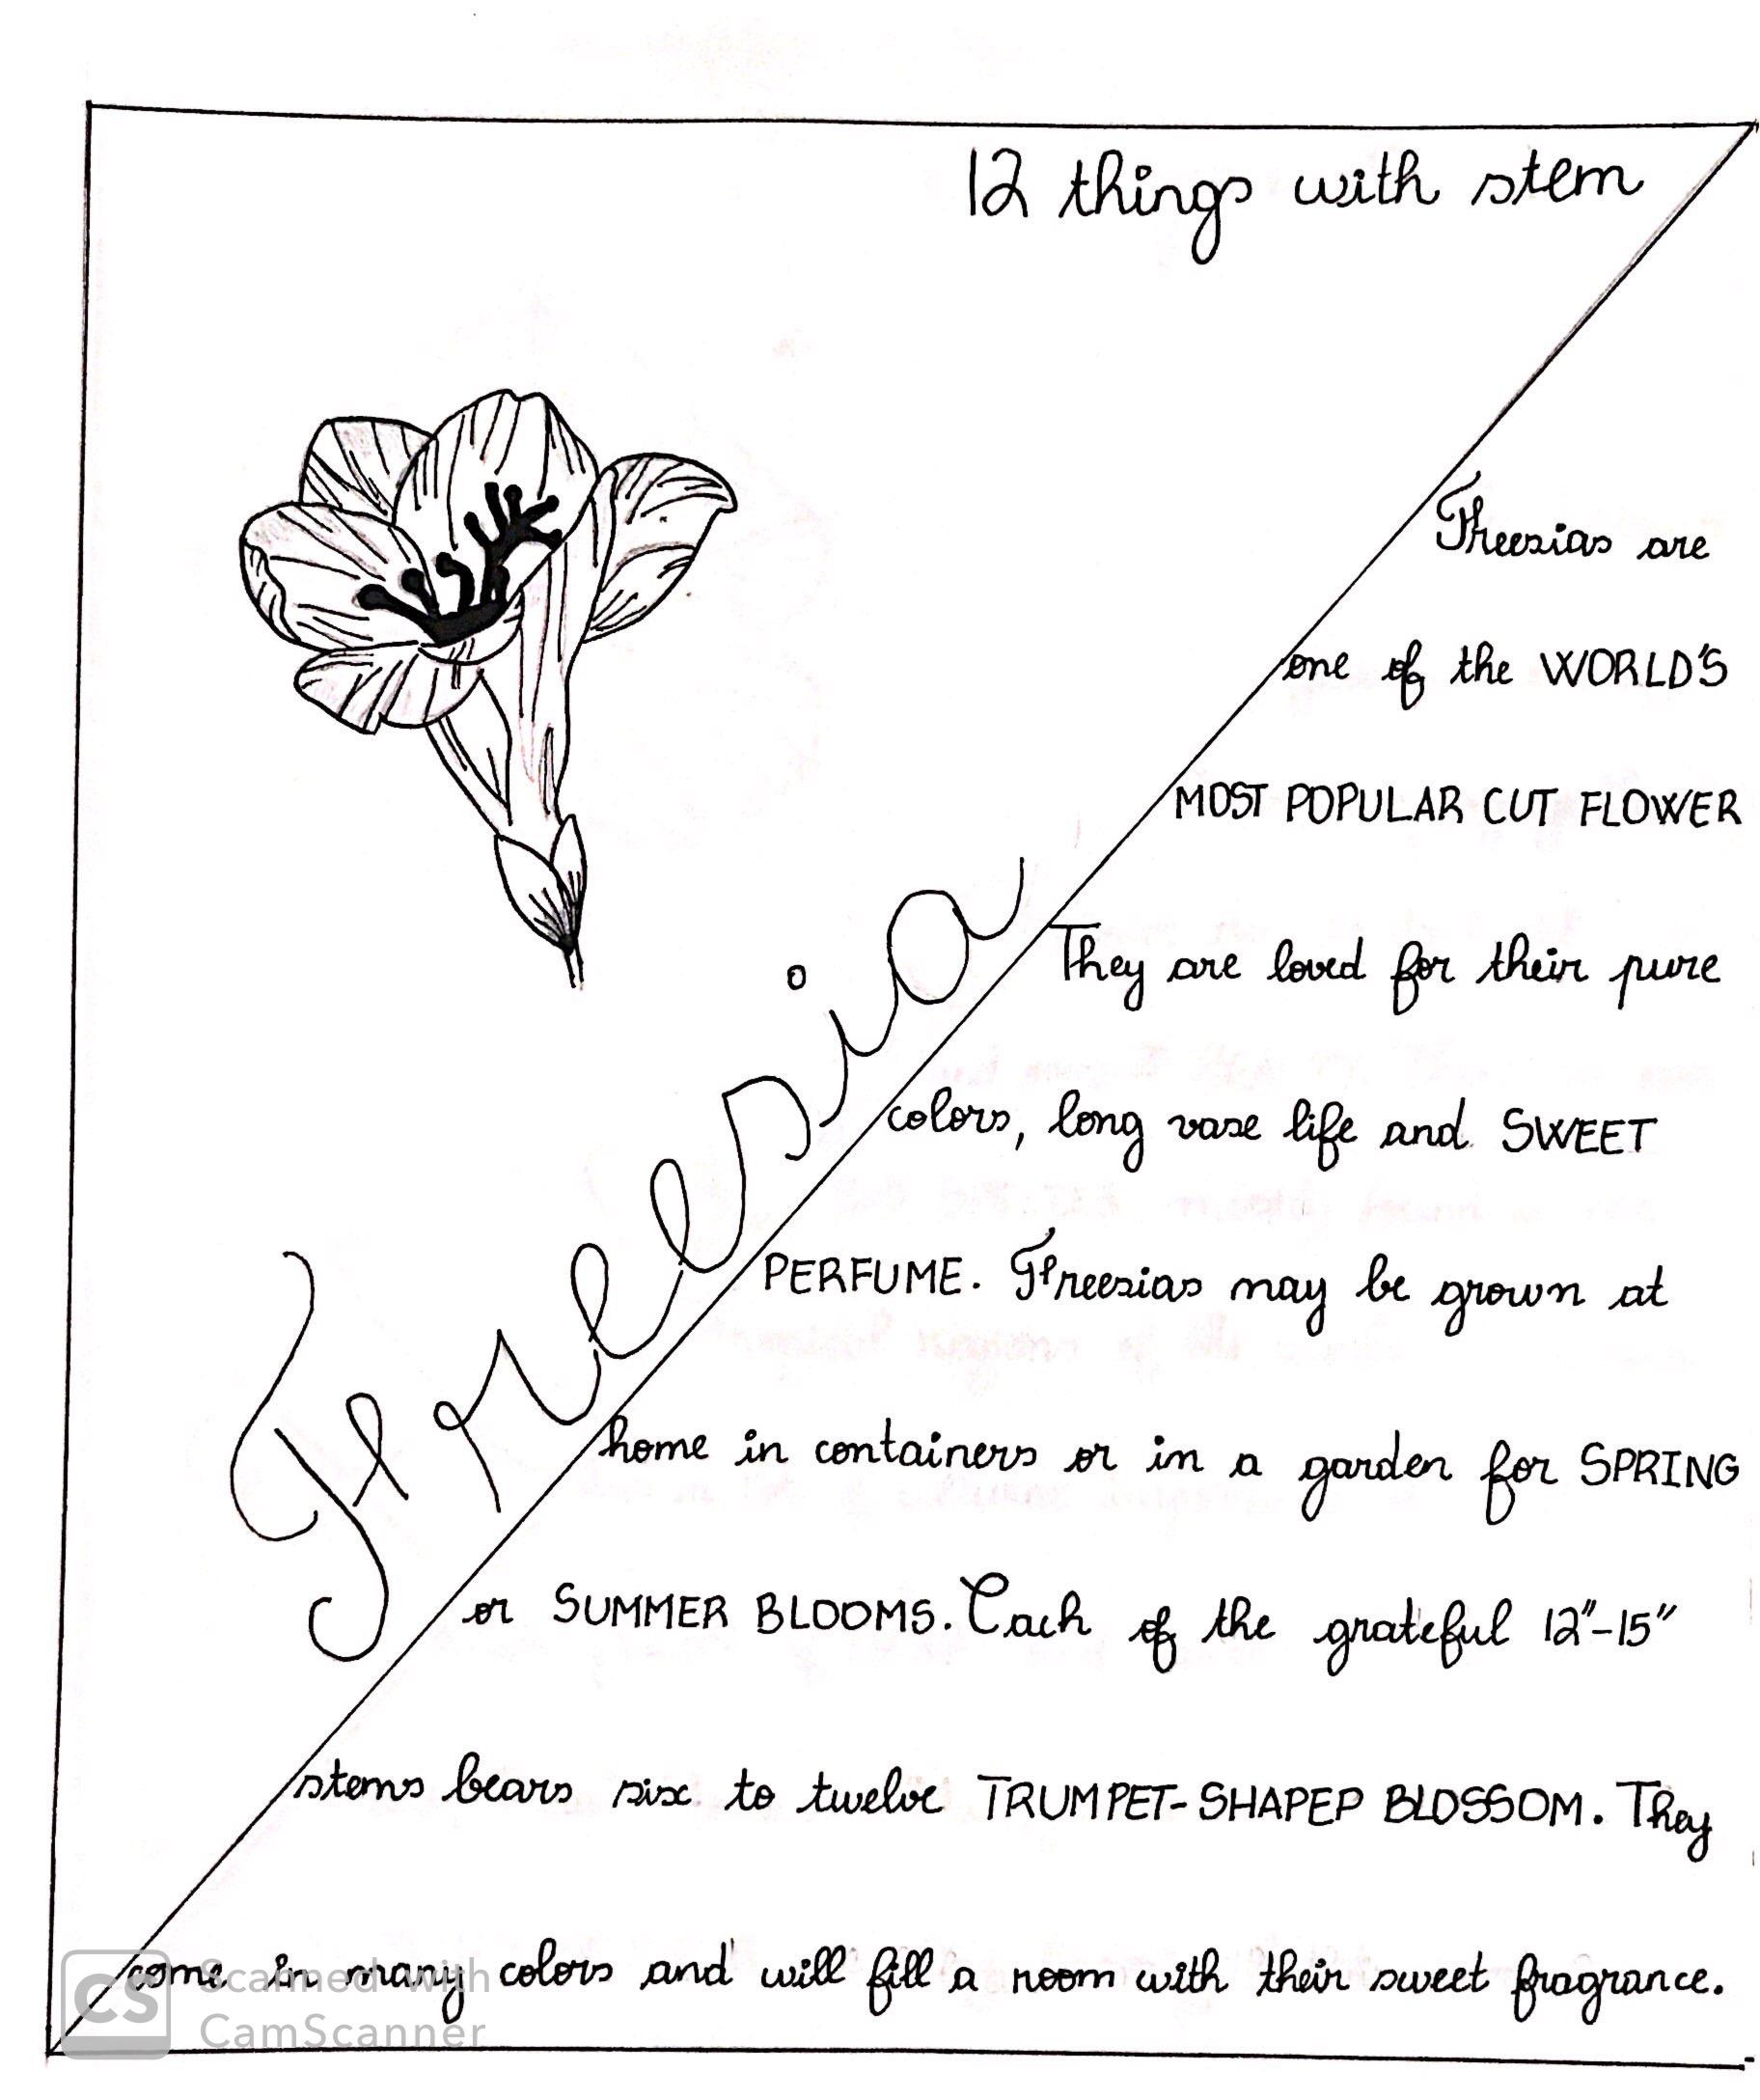 12 things with stem
Freesias are
one of the WORLD'S
MOST POPULAR CUT FLOWER
They are loved for their pure
colors, long vase life and SWEET
Freesia
PERFUME. Freesias may be grown at
home in containers or in a garden for SPRING
or SUMMER BLOOMS. Each of the grateful 12"-15"
stems bears six to twelve TRUMPET-SHAPED BLOSSOM. They
come in many colors and will fill a room with their sweet fragrance.
CS Scanned with
CamScanner